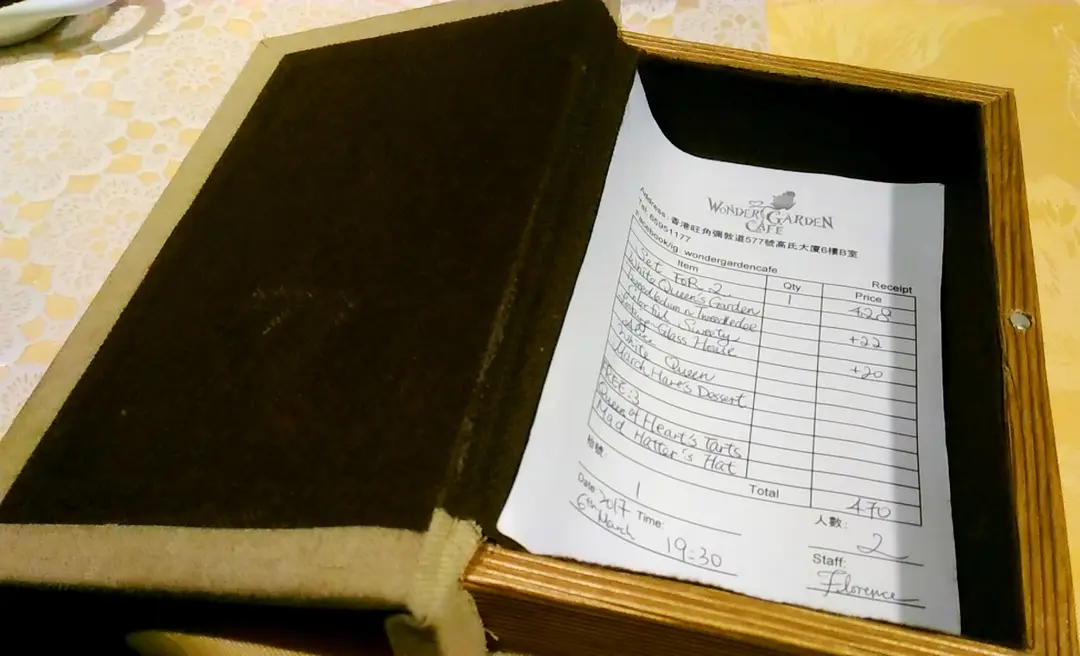 WONDER GARDEN
CAFE
Address: 香港旺角彌敦道577號高氏大廈6樓B室
Tel: 65951177
Facebook/ig: wondergardencafe
Receipt
Item Qty Price
Set FOR 2 1 428
White Queen's Garden
Tweedledum n Tweedledee +22
Colorful Sweety
Glass House +20
Alice
White Queen
March Hare's Dessert
FREE:3
Queen of Heart's Tarts
Mad Hatter's Hat
Total 470
檯號: 1
人數: 2
Date: 2017 6th March Time: 19:30
Staff: Florence